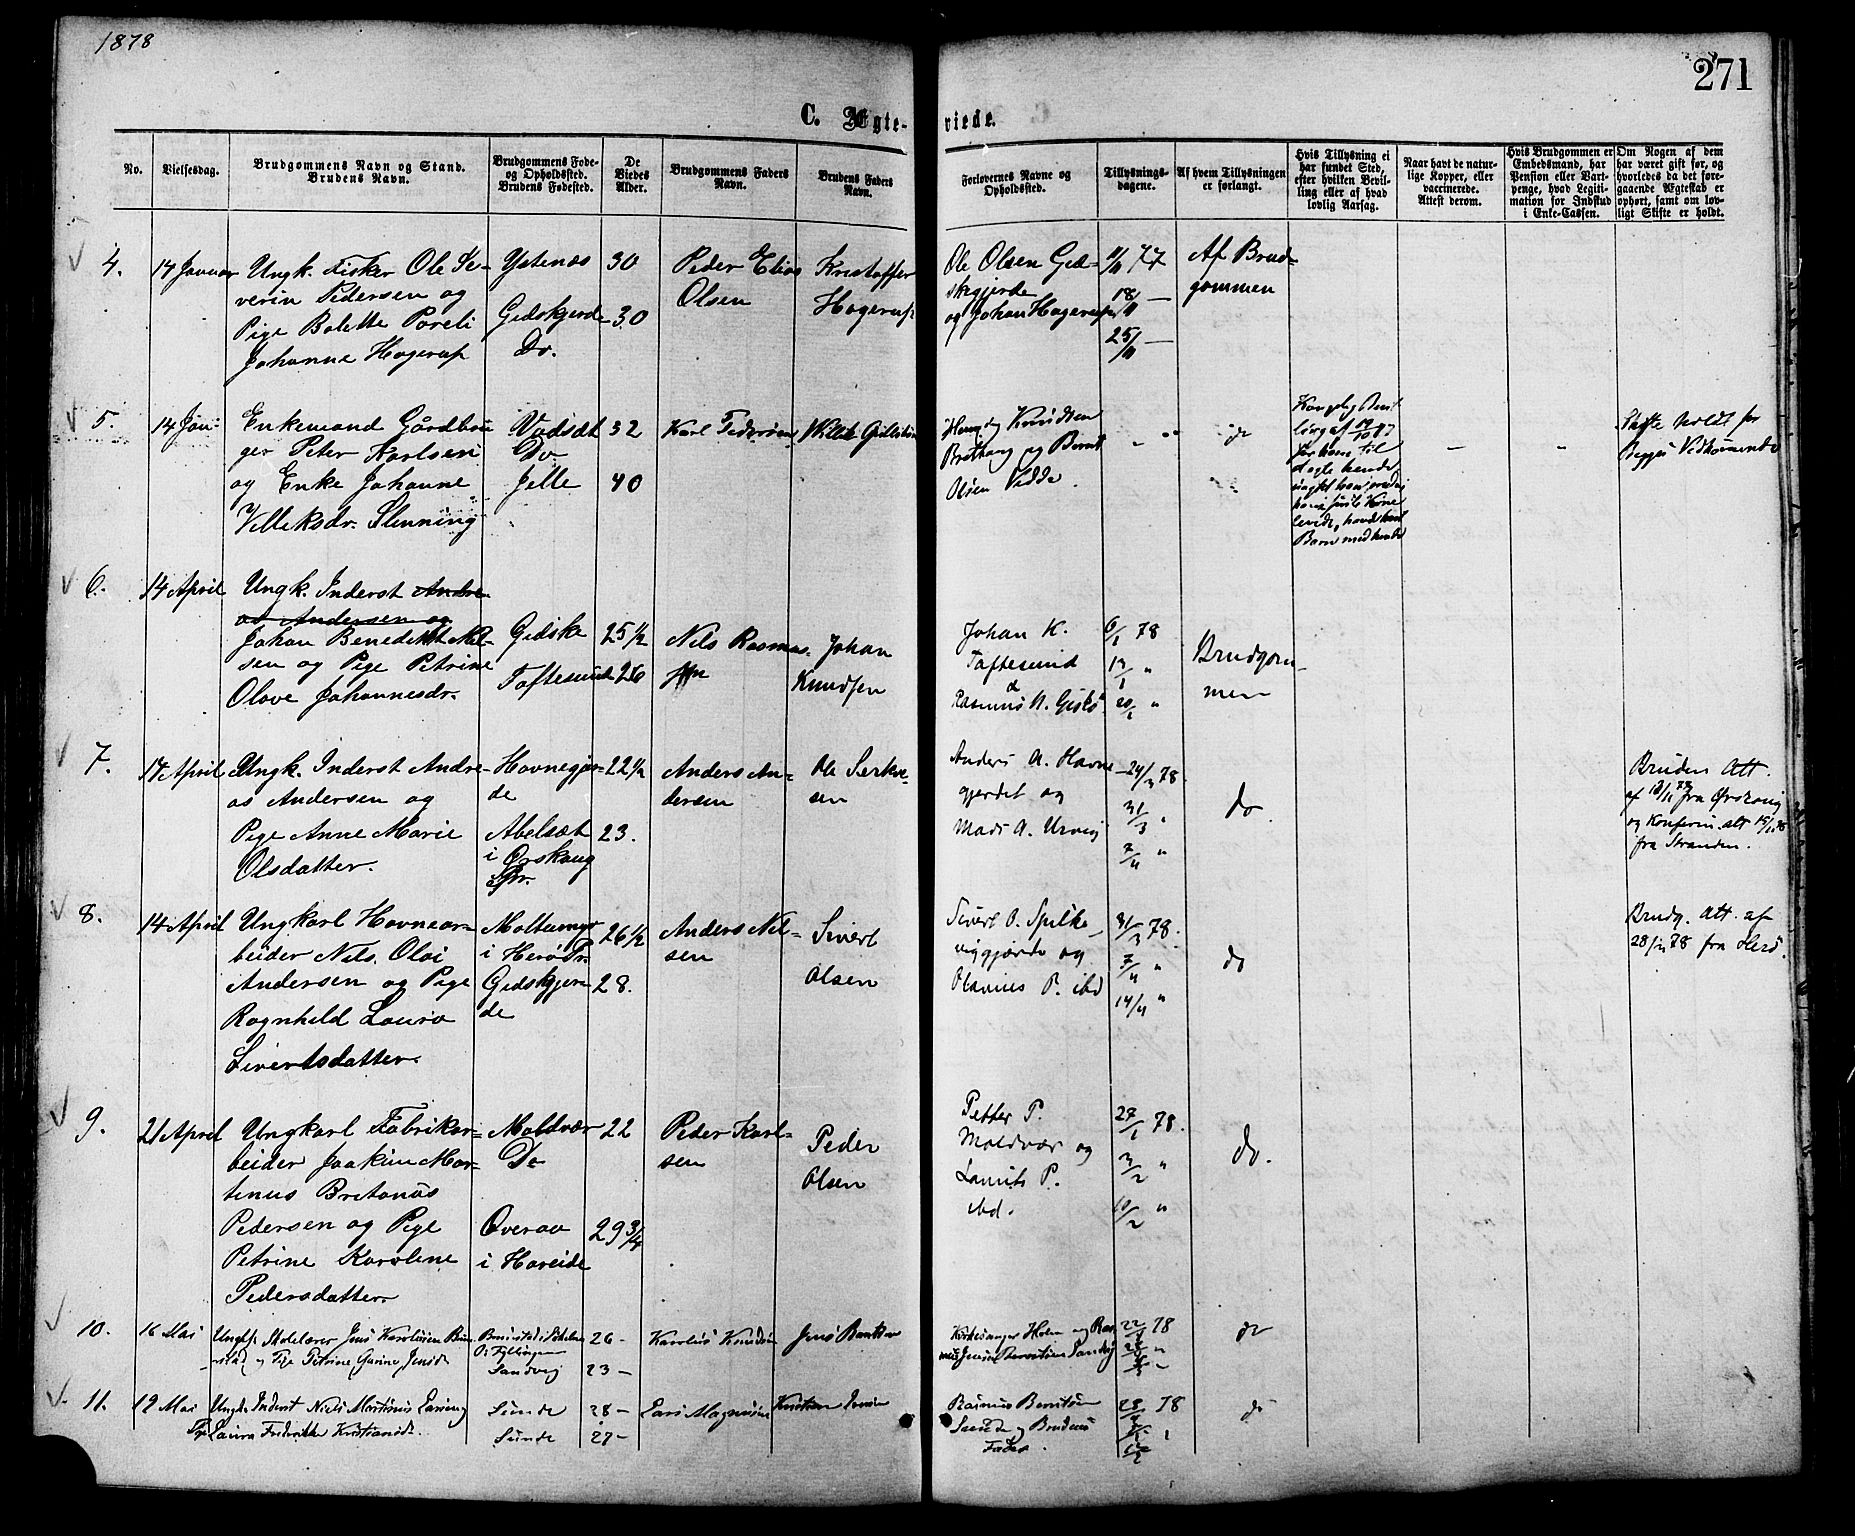 1878
271
C. Ægte-
viede.
No.
Vielsesdag.
Brudgommens Navn og Stand.
Brudens Navn.
Brudgommens Føde-
og Opholdssted.
Brudens Fødested.
De
Viedes
Alder.
Brudgommens Faders
Navn.
Brudens Faders
Navn.
Forlovernes Navne og
Opholdssted.
Tillysnings-
dagene.
Af hvem Tillysningen
er forlangt.
Hvis Tillysning ei
har fundet Sted,
efter hvilken Bevil-
ling eller af hvad
lovlig Aarsag.
Naar havt de natur-
lige Kopper, eller
vaccinerede.
Attest derom.
Hvis Brudgommen er
Embedsmand, har
Pension eller Vart-
penge, hvad Legiti-
mation for Indskud
i Enke-Cassen.
Om Nogen af dem
har været gift før, og
hvorledes da det fore-
gaaende Ægteskab er
ophørt, samt om lov-
ligt Skifte er holdt.
4.
14 Januar
Ungk. Fisker Ole Se-
verin Pedersen og
Pige Bolette Poreli
Johanne Hagerup
Ystenæs
Gidskjerde
Do.
30
30
Peder Elias
Olsen
Kristoffer
Hagerup
Ole Olsen Gid-
skegjerde
og Johan Hagerup
11/11 77
18/11 —
25/11 —
Af Brud-
gommen
5.
14 Jan:
Enkemand Gårdbru
ger Peter Karlsen
og Enke Johanne
Villeksdr. Slenning
Vadsæt
Do
Jelle
32
40
Karl Pedersen
Knudsen
og Bernt
Olsen Vedde
do
Kongelig Bevil
ling af
—
—
Skifte holdt for
Begges Vedkommende
6.
14 April
Ungk. Inderst Andre-
as Andersen og
Johan Benedikt Niel-
sen og Pige Petrine
Olave Johannesdr.
Gidske
Toftesund
25 1/2
26
Nils Rasmus-
sen
Johan
Knudsen
Johan K.
Toftesund
&
Rasmus N. Gidske
6/1 78
13/1 "
20/1 "
Brudgom-
men
7.
14 April
Ungk. Inderst Andre-
as Andersen og
Pige Anne Marie
Olsdatter.
Havnegjer-
de
Abelsæt
i Ørskoug
Pr.
22 1/2
23.
Anders An-
dersen
Ole Serkve-
sen
Anders A. Havne-
gjerdet og
Mads A. Urvig
24/3 78.
31/3 "
7/4 "
do.
Brudens Att.
af fra Ørskoug
og Konfirm. att 15/
fra Stranden.
8.
14 April
Ungkarl Havnear-
beider Nils Olai
Andersen og Pige
Ragnhild Laura
Sivertsdatter.
Moltumyr
i Herø Pr.
Gidskgjer-
de
26 1/2
28.
Anders Nil-
sen
Sivert
Olsen
Sivert O. Spilke-
viggjærde og
Olavius P. ibd
31/3 78.
7/4 "
14/4 "
do
Brudg. Att. af
28/ 78 fra Herø.
9.
21 April
Ungkarl Fabrikar-
beider Joakim Mar-
tinus Britanus
Pedersen og Pige
Petrine Karolene
Pedersdatter.
Moldvær
Do
Overaa
i Hareide
22
29 3/4
Peder Karl-
sen
Peder
Olsen
Petter P.
Moldvær og
Laurits P.
ibd.
27/1 78.
3/2 "
10/2 "
do.
10.
16 Mai
Ungk. Skolelærer Jens Karolusen Brun-
stad og Pige Petrine Gurine Jensd.
Brunstad i Søkelven
Sandvig
26 —
23 —
Karolus Knudsen
Jens Berntsen
Kirkesanger Holm og Ras-
mus Jensen Berntsen Sandvig
22/ 78
do
11.
12 Mai
Ungk. Inderst Niels Martinus Larsen og
Pg. Laura Fredrikke Kristiansdr.
Sunde
Sunde
28 —
27 —
Lars Magnusen
Kristian Jensen
Rasmus Berntsen
Sunde og Brudens
Fader.
28/ 78
do